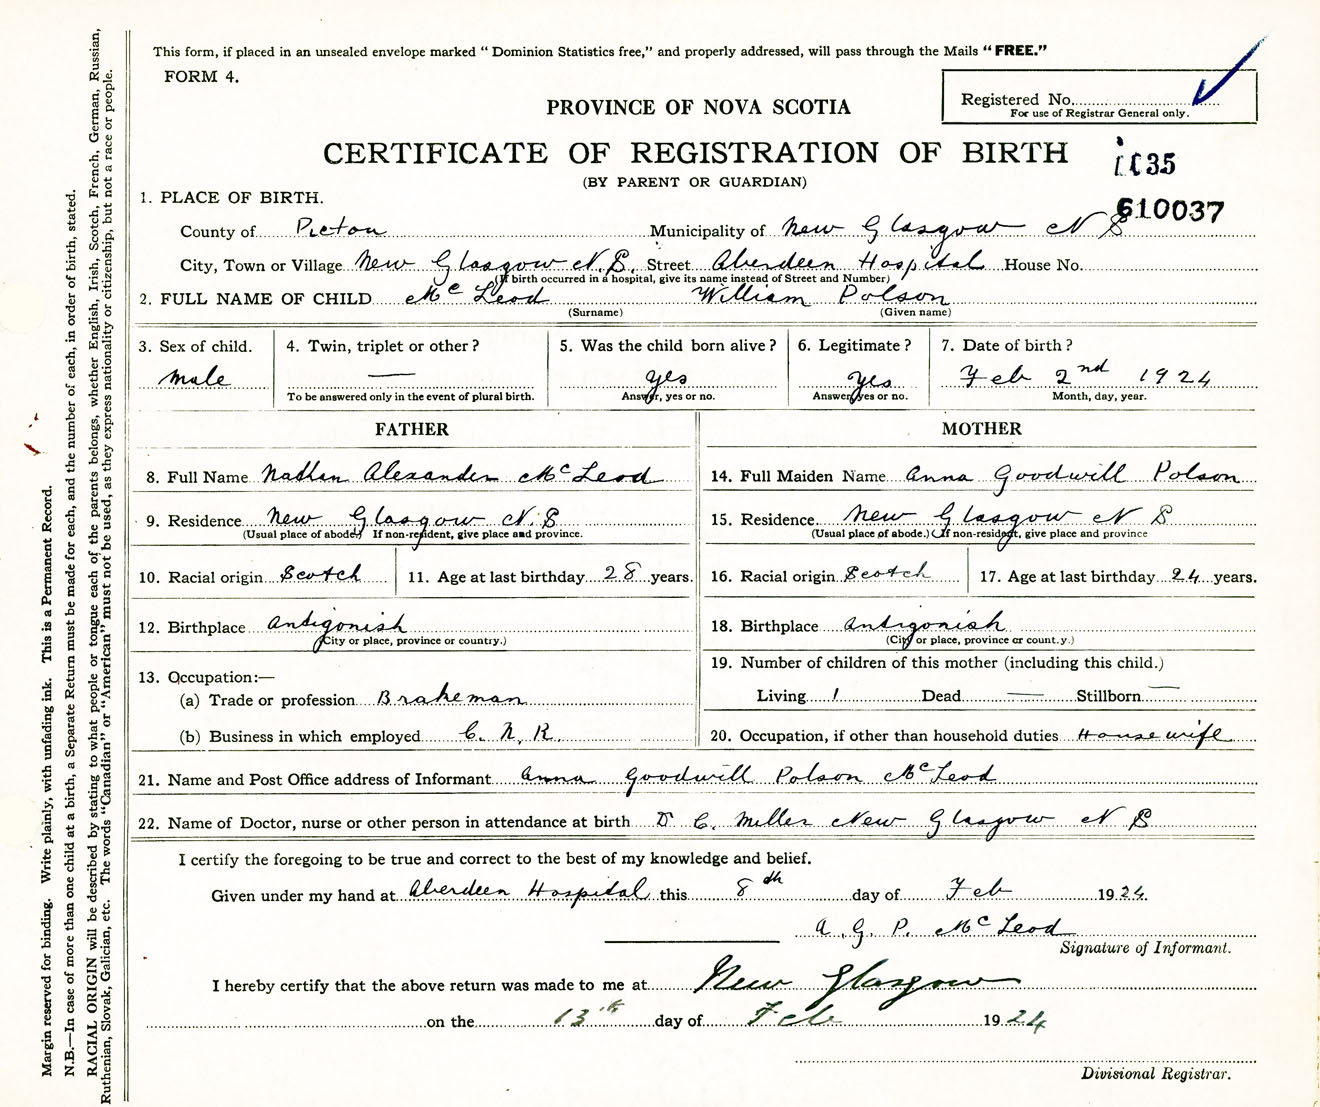 This form, if placed in an unsealed envelope marked "Dominion Statistics free," and properly addressed, will pass through the Mails "FREE."
FORM 4.
Registered No.
For use of Registrar General only.
PROVINCE OF NOVA SCOTIA
CERTIFICATE OF REGISTRATION OF BIRTH
35
(BY PARENT OR GUARDIAN)
610037
1. PLACE OF BIRTH.
County of Pictou Municipality of New Glasgow N S
City, Town or Village New Glasgow N.S. Street Aberdeen Hospital House No.
(If birth occurred in a hospital, give its name instead of Street and Number)
2. FULL NAME OF CHILD McLeod William Polson
(Surname) (Given name)
3. Sex of child. 4. Twin, triplet or other? 5. Was the child born alive? 6. Legitimate? 7. Date of birth?
Male — Yes Yes Feb 2nd 1924
To be answered only in the event of plural birth. Answer, yes or no. Answer, yes or no. Month, day, year.
FATHER MOTHER
8. Full Name Nathan Alexander McLeod 14. Full Maiden Name Anna Goodwill Polson
9. Residence New Glasgow N.S 15. Residence. New Glasgow N S
(Usual place of abode.) If non-resident, give place and province. (Usual place of abode.) (If non-resident, give place and province
10. Racial origin Scotch 11. Age at last birthday 28 years. 16. Racial origin Scotch 17. Age at last birthday 24 years.
12. Birthplace Antigonish 18. Birthplace Antigonish
(City or place, province or country.) (City or place, province or count.y.)
13. Occupation:— 19. Number of children of this mother (including this child.)
(a) Trade or profession Brakeman Living 1 Dead — Stillborn —
(b) Business in which employed C. N. R. 20. Occupation, if other than household duties Housewife
21. Name and Post Office address of Informant Anna Goodwill Polson McLeod
22. Name of Doctor, nurse or other person in attendance at birth Dr C. Miller New Glasgow N S
I certify the foregoing to be true and correct to the best of my knowledge and belief.
Given under my hand at Aberdeen Hospital this 8th day of Feb 1924.
A. G. P. McLeod
Signature of Informant.
I hereby certify that the above return was made to me at New Glasgow
on the 13th day of Feb 1924
Divisional Registrar.
Margin reserved for binding. Write plainly, with unfading ink. This is a Permanent Record.
N.B.—In case of more than one child at a birth, a Separate Return must be made for each, and the number of each, in order of birth, stated.
RACIAL ORIGIN will be described by stating to what people or tongue each of the parents belongs, whether English, Irish, Scotch, French, German, Russian,
Ruthenian, Slovak, Galician, etc. The words "Canadian" or "American" must not be used, as they express nationality or citizenship, but not a race or people.